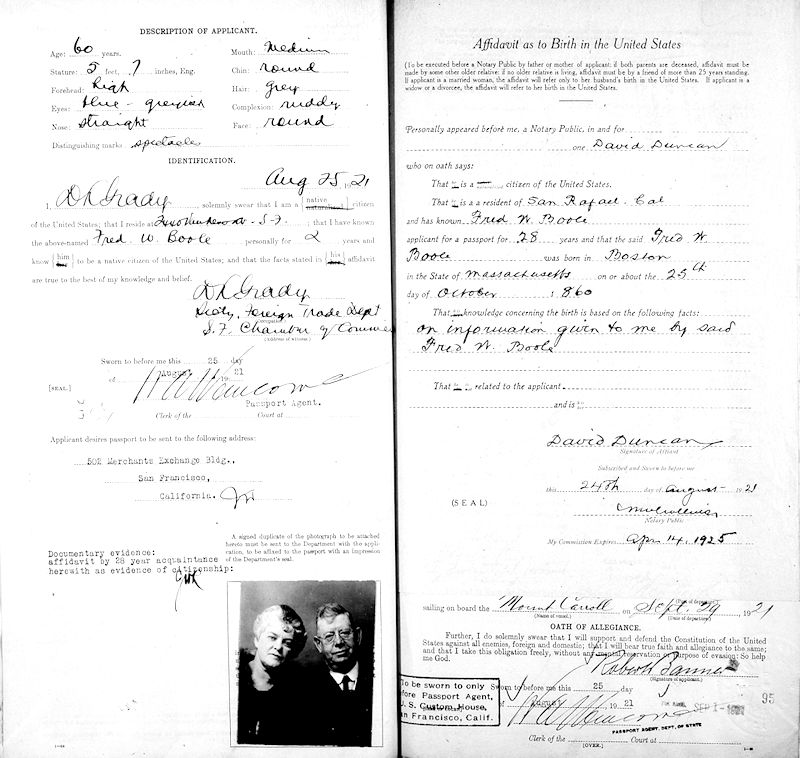 DESCRIPTION OF APPLICANT.
Age: 60 years.
Mouth: Medium
Stature: 5 feet, 7 inches, Eng.
Chin: round
Forehead: high
Hair: grey
Eyes: blue - greyish
Complexion: ruddy
Nose: straight
Face: round
Distinguishing marks spectacles
IDENTIFICATION.
Aug 25, 1921
I, D L Grady, solemnly swear that I am a {native naturalized} citizen
of the United States; that I reside at S. F.; that I have known
the above-named Fred. W. Boole personally for 2 years and
know {him} to be a native citizen of the United States; and that the facts stated in {his} affidavit
are true to the best of my knowledge and belief.
D L Grady
Secty, Foreign Trade Dept
(Occupation)
S. F. Chamber of Commerce
(Address of witness.)
Sworn to before me this 25 day
of August, 1921
[SEAL.]
Passport Agent.
Clerk of the Court at
Applicant desires passport to be sent to the following address:
502 Merchants Exchange Bldg.,
San Francisco,
California.
A signed duplicate of the photograph to be attached
hereto must be sent to the Department with the appli-
cation, to be affixed to the passport with an impression
of the Department's seal.
Documentary evidence:
affidavit by 28 year acquaintance
herewith as evidence of citizenship:
Affidavit as to Birth in the United States
(To be executed before a Notary Public by father or mother of applicant; if both parents are deceased, affidavit must be
made by some other older relative; if no older relative is living, affidavit must be by a friend of more than 25 years standing.
If applicant is a married woman, the affidavit will refer only to her husband's birth in the United States. If applicant is a
widow or a divorcee, the affidavit will refer to her birth in the United States.
Personally appeared before me, a Notary Public, in and for
one David Duncan
who on oath says:
That is a citizen of the United States.
That is a resident of San Rafael. Cal
and has known Fred W. Boole
applicant for a passport for 28 years and that the said Fred W
Boole was born in Boston
in the State of Massachusetts on or about the 25th
day of October 1860
That knowledge concerning the birth is based on the following facts:
on information given to me by said
Fred W. Boole
That related to the applicant
and is
David Duncan
Signature of Affiant
Subscribed and Sworn to before me
this 24th day of August 1921
(SEAL)
Notary Public
My Commission Expires Apr 14, 1925
(Port of departure)
sailing on board the Mount Carroll on Sept. 29, 1921
(Name of vessel.) (Date of departure)
OATH OF ALLEGIANCE.
Further, I do solemnly swear that I will support and defend the Constitution of the United
States against all enemies, foreign and domestic; that I will bear true faith and allegiance to the same;
and that I take this obligation freely, without any mental reservation or purpose of evasion: So help
me God.
(Signature of applicant.)
To be sworn to only
before Passport Agent,
U. S. Custom House,
San Francisco, Calif.
Sworn to before me this 25 day
of August, 1921
SEP 1 - 1921
95
PASSPORT AGENT, DEPT. OF STATE
Clerk of the Court at
[OVER.]